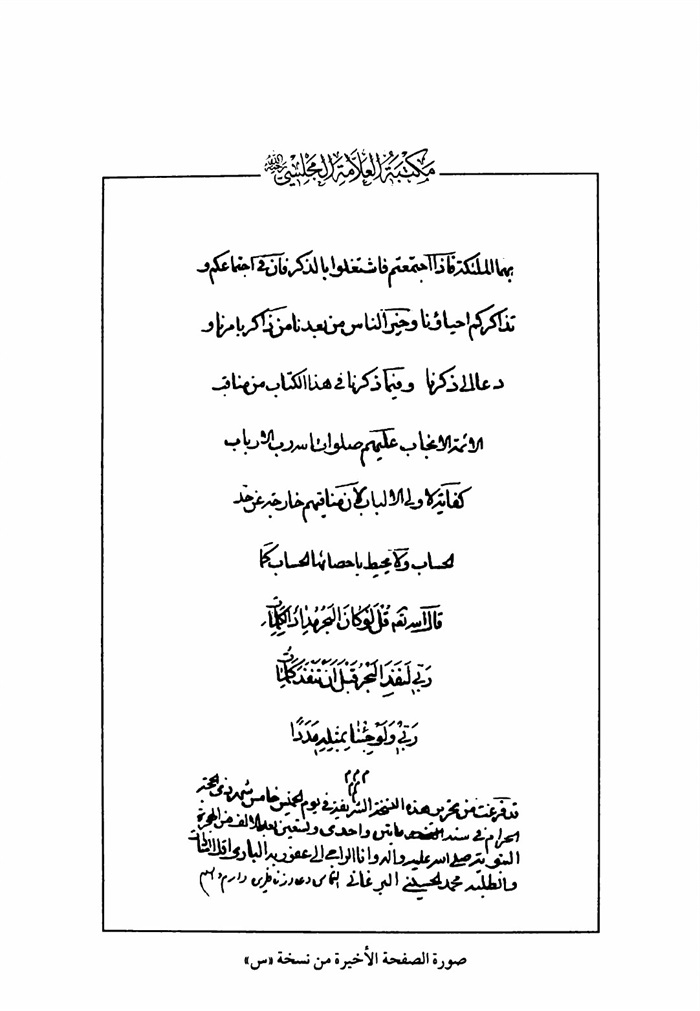 مكتبة العلامة المجلسي رحمه الله
بهما الملئكة فاذا اجتمعتم فاشتغلوا بالذكر فان في اجتماعكم و
تذاكركم احياؤنا وخير الناس من بعدنا من ذاكر بامرنا و
دعا الى ذكرنا وفيما ذكرنا في هذا الكتاب من مناقب
الائمة الانجاب عليهم صلوات الله رب الارباب
كفاية لاولى الالباب لان مناقبهم خارجة عن حد
الحساب ولا يحيط باحصائها الحساب كما
قال الله تعه قُل لَوكانَ البَحرُ مِداداً لِكَلِماتِ
رَبّي لَنَفِدَ البَحرُ قَبلَ اَن تَنفَدَ كَلِماتُ
رَبّي وَلَو جِئنا بِمِثلِهِ مَدَدًا
قد فرغت من تحرير هذه النسخة الشريفة في يوم الخميس خامس شهر ذى الحجة
الحرام في سنة مائتين واحدى وتسعين بعد الالف من الهجرة
النبوية صلى الله عليه واله وانا الراجى الى عفو ربه البارى اقل
والطلبة محمد الحسيني التماس دعا دارم
صورة الصفحة الأخيرة من نسخة «س»